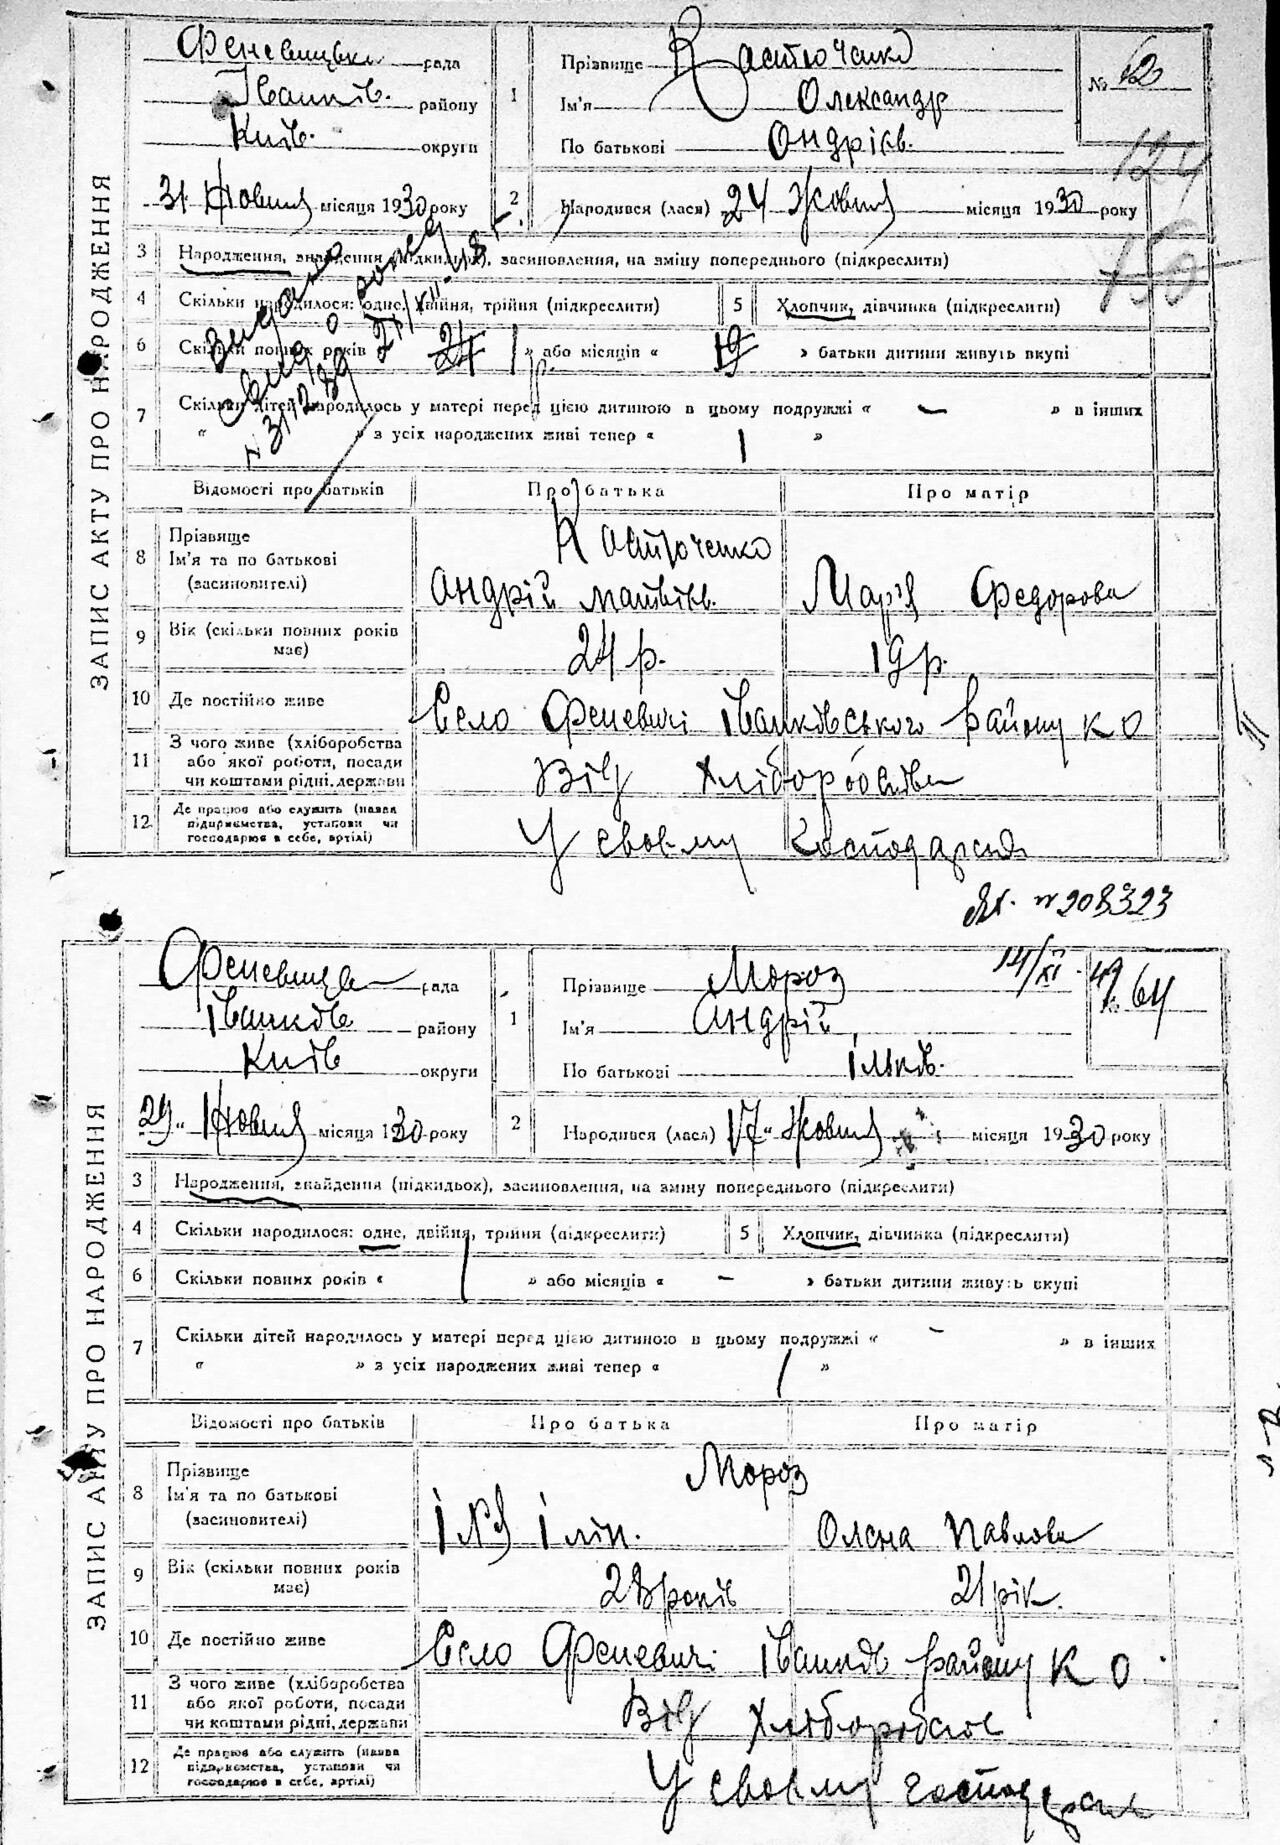 ЗАПИС АКТУ ПРО НАРОДЖЕННЯ
Феневицька рада
Іванків. району
Київ. округи
31 Жовтня місяця 1930 року
1
Прізвище Костюченко
Ім'я Олександр
По батькові Андрієв.
№ 62
124
150
2 Народився (лася) 24 Жовтня місяця 1930 року
3 Народження, знайдення (підкидьок), засиновлення, на зміну попереднього (підкреслити)
4 Скільки народилося: одне, двійня, трійня (підкреслити) 5 Хлопчик, дівчинка (підкреслити)
6 Скільки повних років « 24 1 р. » або місяців « 19 » батьки дитини живуть вкупі
7 Скільки дітей народилось у матері перед цією дитиною в цьому подружжі « — » в інших
« » з усіх народжених живі тепер « 1 »
Видано
Відомості про батьків Про батька Про матір
8 Прізвище
Ім'я та по батькові
(засиновителі)
Костюченко
Андрій Матвієв. Мар'я Федорова
9 Вік (скільки повних років має) 24 р. 19 р.
10 Де постійно живе Село Феневичі Іванківського району К О
11 З чого живе (хліборобства
або якої роботи, посади
чи коштами рідні, держави
Від Хліборобства
12 Де працює або служить (назва
підприємства, установи чи
господарює в себе, артілі)
У своєму господарстві
№ 208323
14/XI 49
ЗАПИС АКТУ ПРО НАРОДЖЕННЯ
Феневицька рада
Іванків району
Київ округи
29 Жовтня місяця 1930 року
1
Прізвище Мороз
Ім'я Андрій
По батькові Ільків.
№ 64
2 Народився (лася) 17 Жовтня місяця 1930 року
3 Народження, знайдення (підкидьок), засиновлення, на зміну попереднього (підкреслити)
4 Скільки народилося: одне, двійня, трійня (підкреслити) 5 Хлопчик, дівчинка (підкреслити)
6 Скільки повних років « 1 » або місяців « — » батьки дитини живуть вкупі
7 Скільки дітей народилось у матері перед цією дитиною в цьому подружжі « — » в інших
« » з усіх народжених живі тепер « 1 »
Відомості про батьків Про батька Про матір
8 Прізвище
Ім'я та по батькові
(засиновителі)
Мороз
Олена Павлова
9 Вік (скільки повних років має) 28 років 21 рік.
10 Де постійно живе Село Феневичі Іванків району К О
11 З чого живе (хліборобства
або якої роботи, посади
чи коштами рідні, держави
Від Хліборобства
12 Де працює або служить (назва
підприємства, установи чи
господарює в себе, артілі)
У своєму господарстві